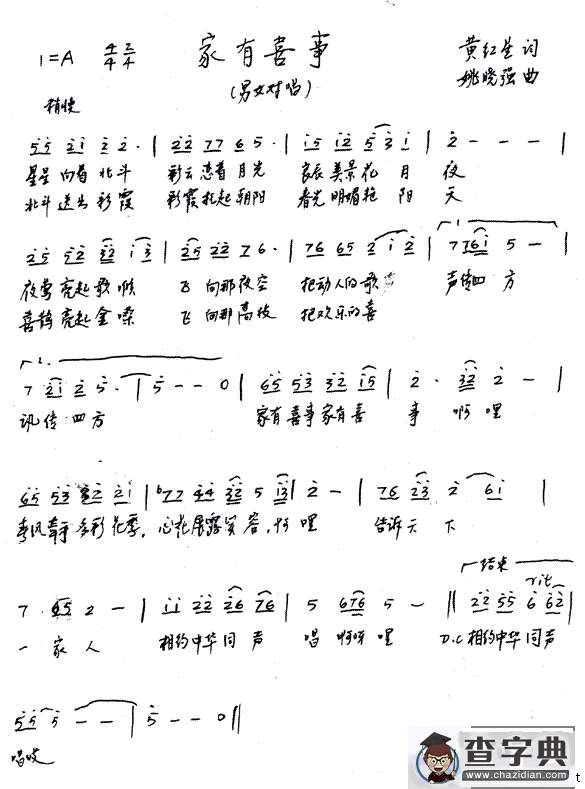 1=A 4/4 2/4 家有喜事 黄红星词
(男女对唱) 姚晓强曲
稍快
5 5 2 1 2 2· | 2 2 7 7 6 5· | 1 5 1 2 5 3 1 | 2 - - - |
星星向着北斗 彩云恋着月光 良辰美景花月夜
北斗送出彩霞 彩霞托起朝阳 春光明媚艳阳天
2 5 5 2 3 2 1 3 | 2 5 2 2 7 6· | 7 6 6 5 2 1 2 | 7 7 6 1 5 - |
夜莺亮起歌喉 飞向那夜空 把动人的歌声传四方
喜鹊亮起金嗓 飞向那高枝 把欢乐的喜
7 2 1 2 5· | 5 - - 0 | 6 5 5 3 3 2 1 5 | 2· 3 2 2 - |
讯传四方 家有喜事家有喜事啊哩
6 5 5 3 2 2 1 | 7 7 4 4 3 2 5 1 3 | 2 - | 7 6 2 3 2 6 1 |
多彩花季，心花 啊哩 告诉天下
7· 6 5 2 - | 1 1 2 2 2 6 7 6 | 5 6 7 6 5 - || 结束 rit 2 2 5 5 6 6 2 |
一家人 相约中华同声唱啊呀哩 D.C 相约中华同声
5 5 5 - - | 5 - - 0 ||
唱吱
查字典
www.chazidian.com
t